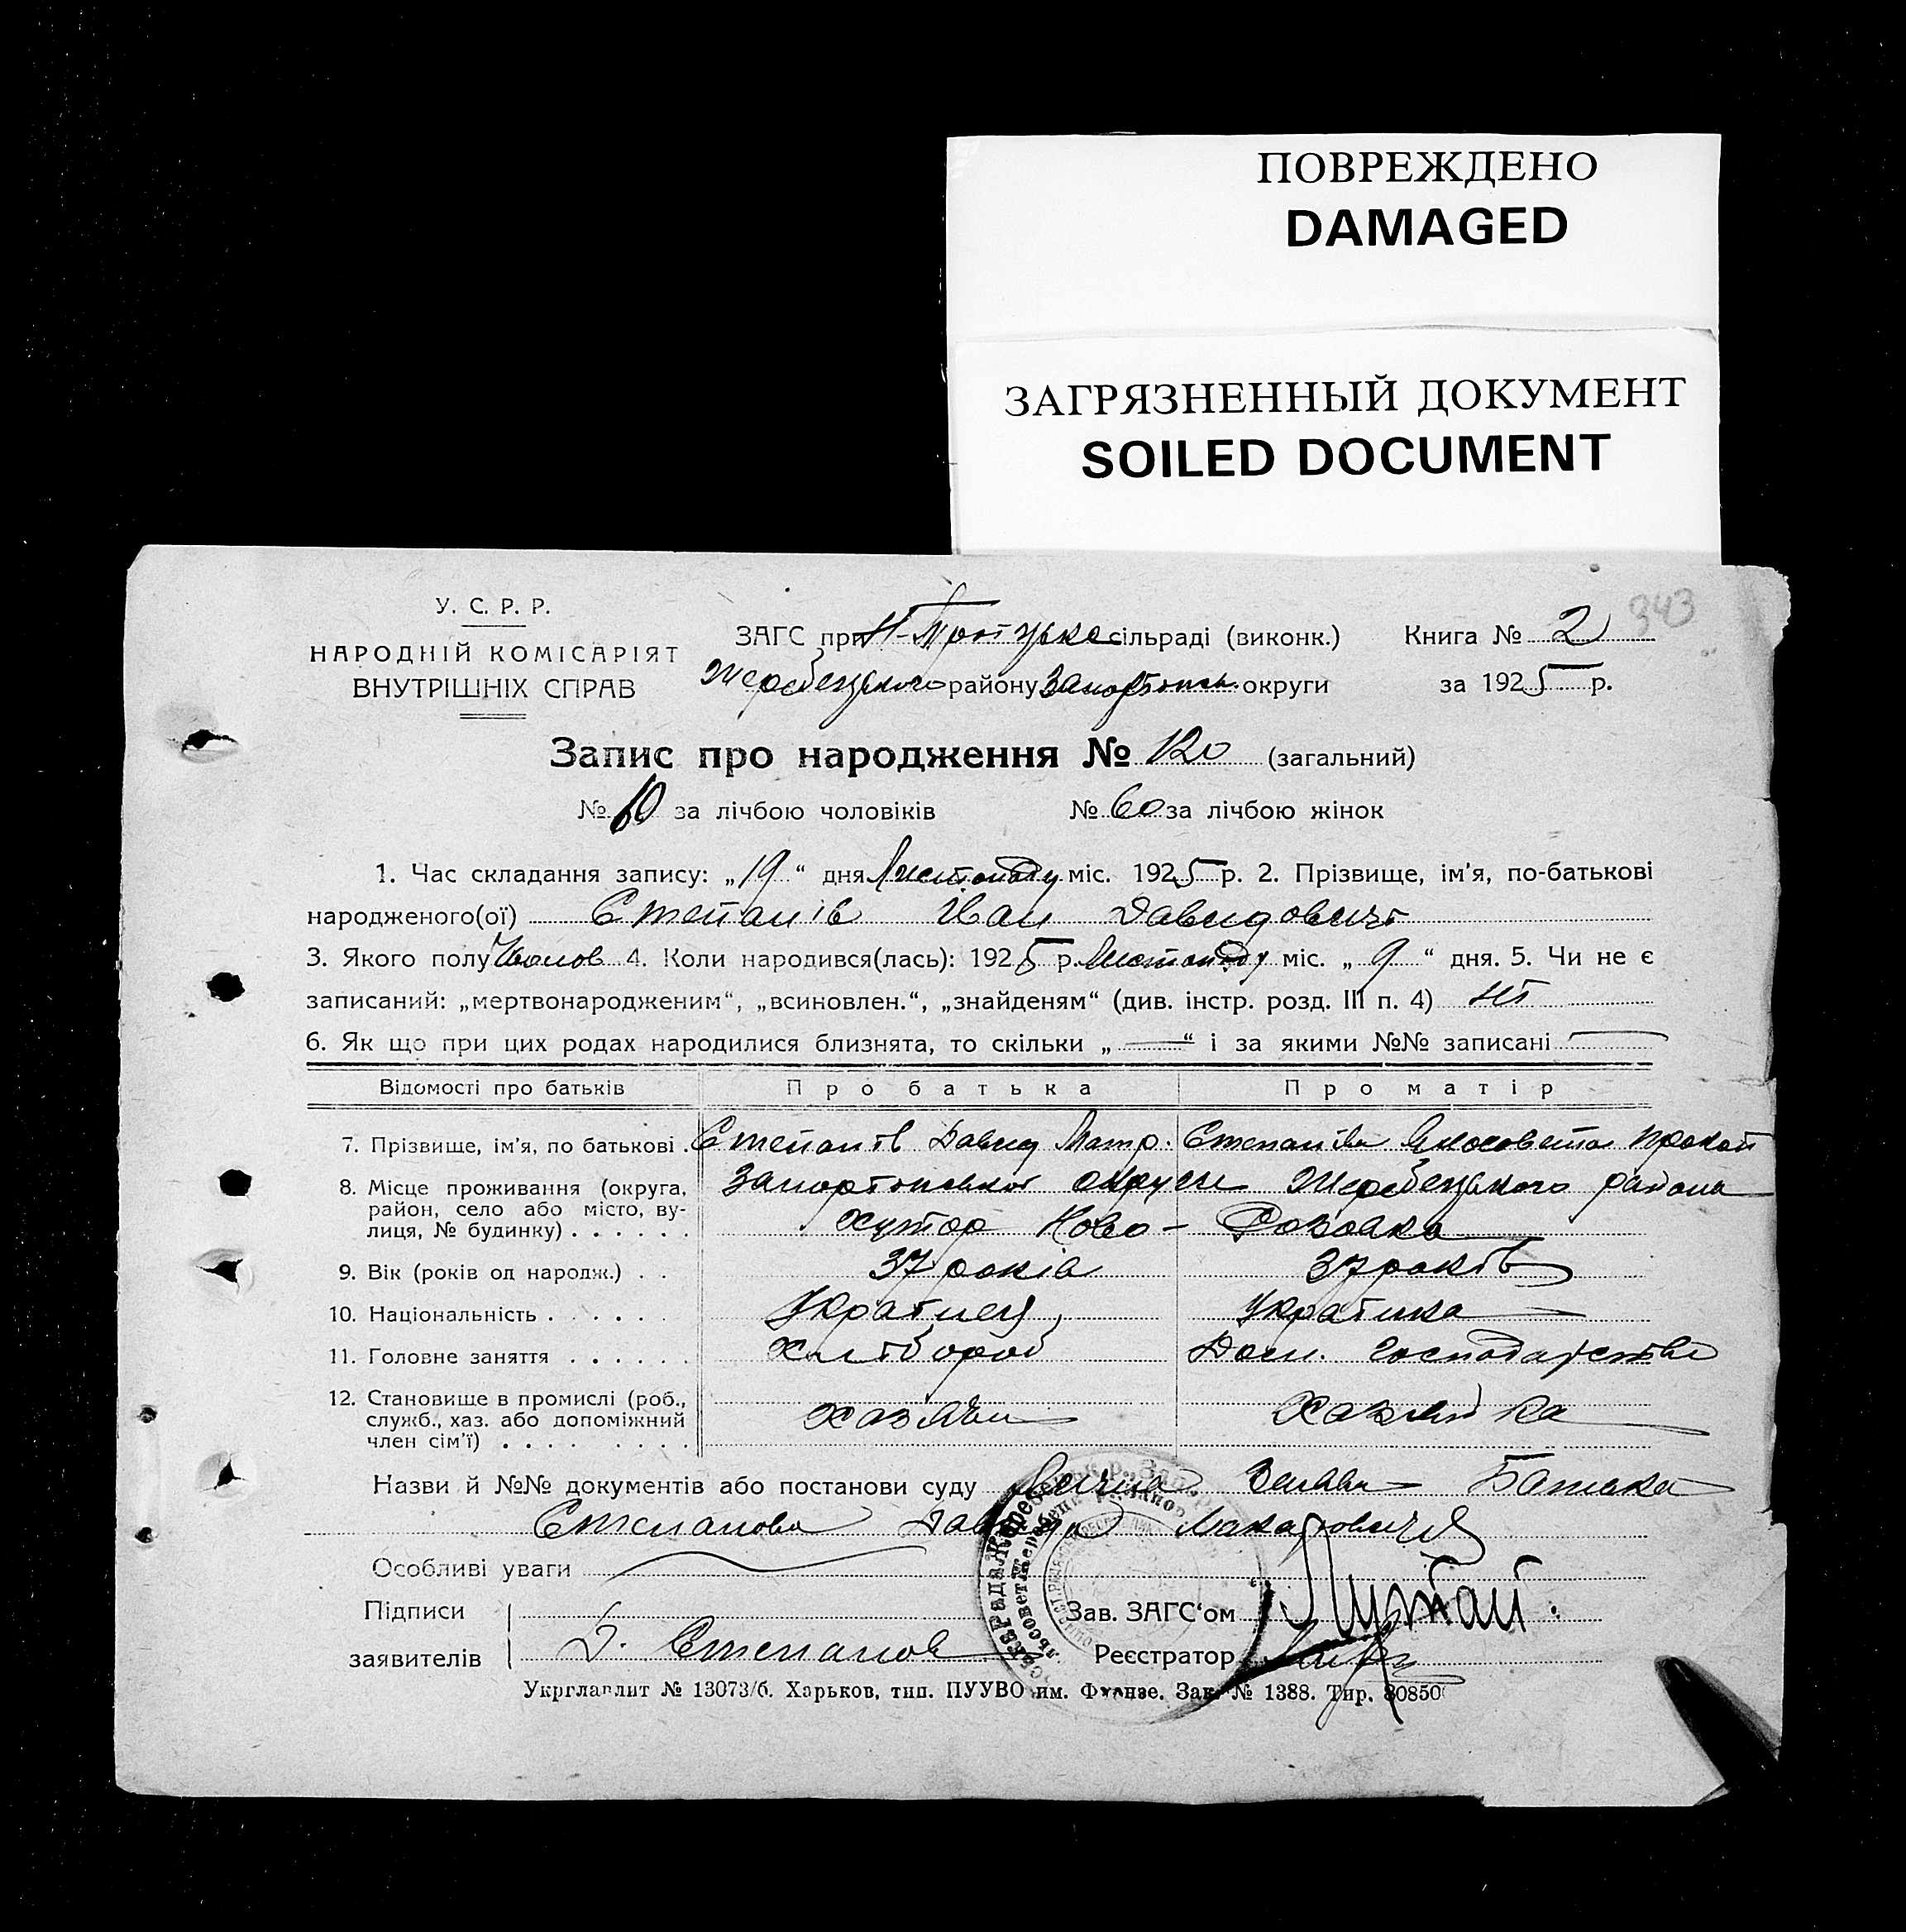 ПОВРЕЖДЕНО
DAMAGED
ЗАГРЯЗНЕННЫЙ ДОКУМЕНТ
SOILED DOCUMENT
343
У. С. Р. Р.
НАРОДНІЙ КОМІСАРІЯТ
ВНУТРІШНІХ СПРАВ
ЗАГС при сільраді (виконк.) Книга № 2
Жеребецького району Запоріжськ. округи за 1925 р.
Запис про народження № 120 (загальний)
№ 60 за лічбою чоловіків № 60 за лічбою жінок
1. Час складання запису: „19“ дня Листопаду міс. 1925 р. 2. Прізвище, ім'я, по-батькові
народженого(ої) Степанів Іван Давидович
3. Якого полу Чолов 4. Коли народився(лась): 1925 р. Листопаду міс. „9“ дня. 5. Чи не є
записаний: „мертвонародженим“, „всиновлен.“, „знайденям“ (див. інстр. розд. III п. 4) ні
6. Як що при цих родах народилися близнята, то скільки „—“ і за якими №№ записані —
Відомості про батьків Про батька Про матір
7. Прізвище, ім'я, по батькові . Степанів Давид Макар. Степаніва Єлизовета Прокоп
8. Місце проживання (округа, Запоріжської округи Жеребецького района
район, село або місто, ву-
лиця, № будинку) . . . . . . хутор Ново-Розовка
9. Вік (років од народж.) . . 37 років 37 років
10. Національність . . . . . . Українец Українка
11. Головне заняття . . . . . . Хлібороб Дом. господарство
12. Становище в промислі (роб.,
служб., хаз. або допоміжний хазяїн Хазяйка
член сім'ї) . . . . . . . .
Назви й №№ документів або постанови суду Лична Заява Батька
Степанова Давида Макаровича
Особливі уваги
Підписи Зав. ЗАГС‘ом
заявителів Д. Степанов Реєстратор
Укрглавлит № 13073/б. Харьков, тип. ПУУВО им. Фрунзе. Зак. № 1388. Тир. 80850